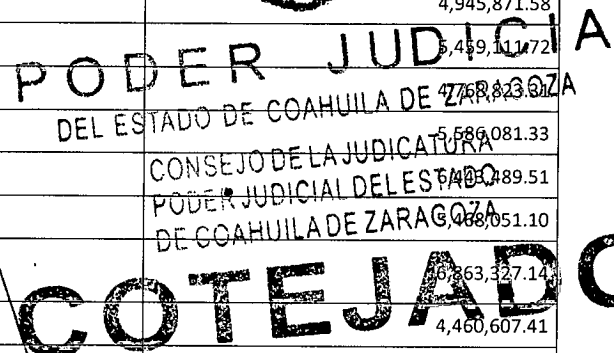 4,945,871.58
PODER JUDICIA
5,459,111.72
4,768,823.31
DEL ESTADO DE COAHUILA DE ZARAGOZA
5,586,081.33
CONSEJO DE LA JUDICATURA
6,443,489.51
PODER JUDICIAL DEL ESTADO
DE COAHUILA DE ZARAGOZA
,468,051.10
6,863,327.14
COTEJADO
4,460,607.41